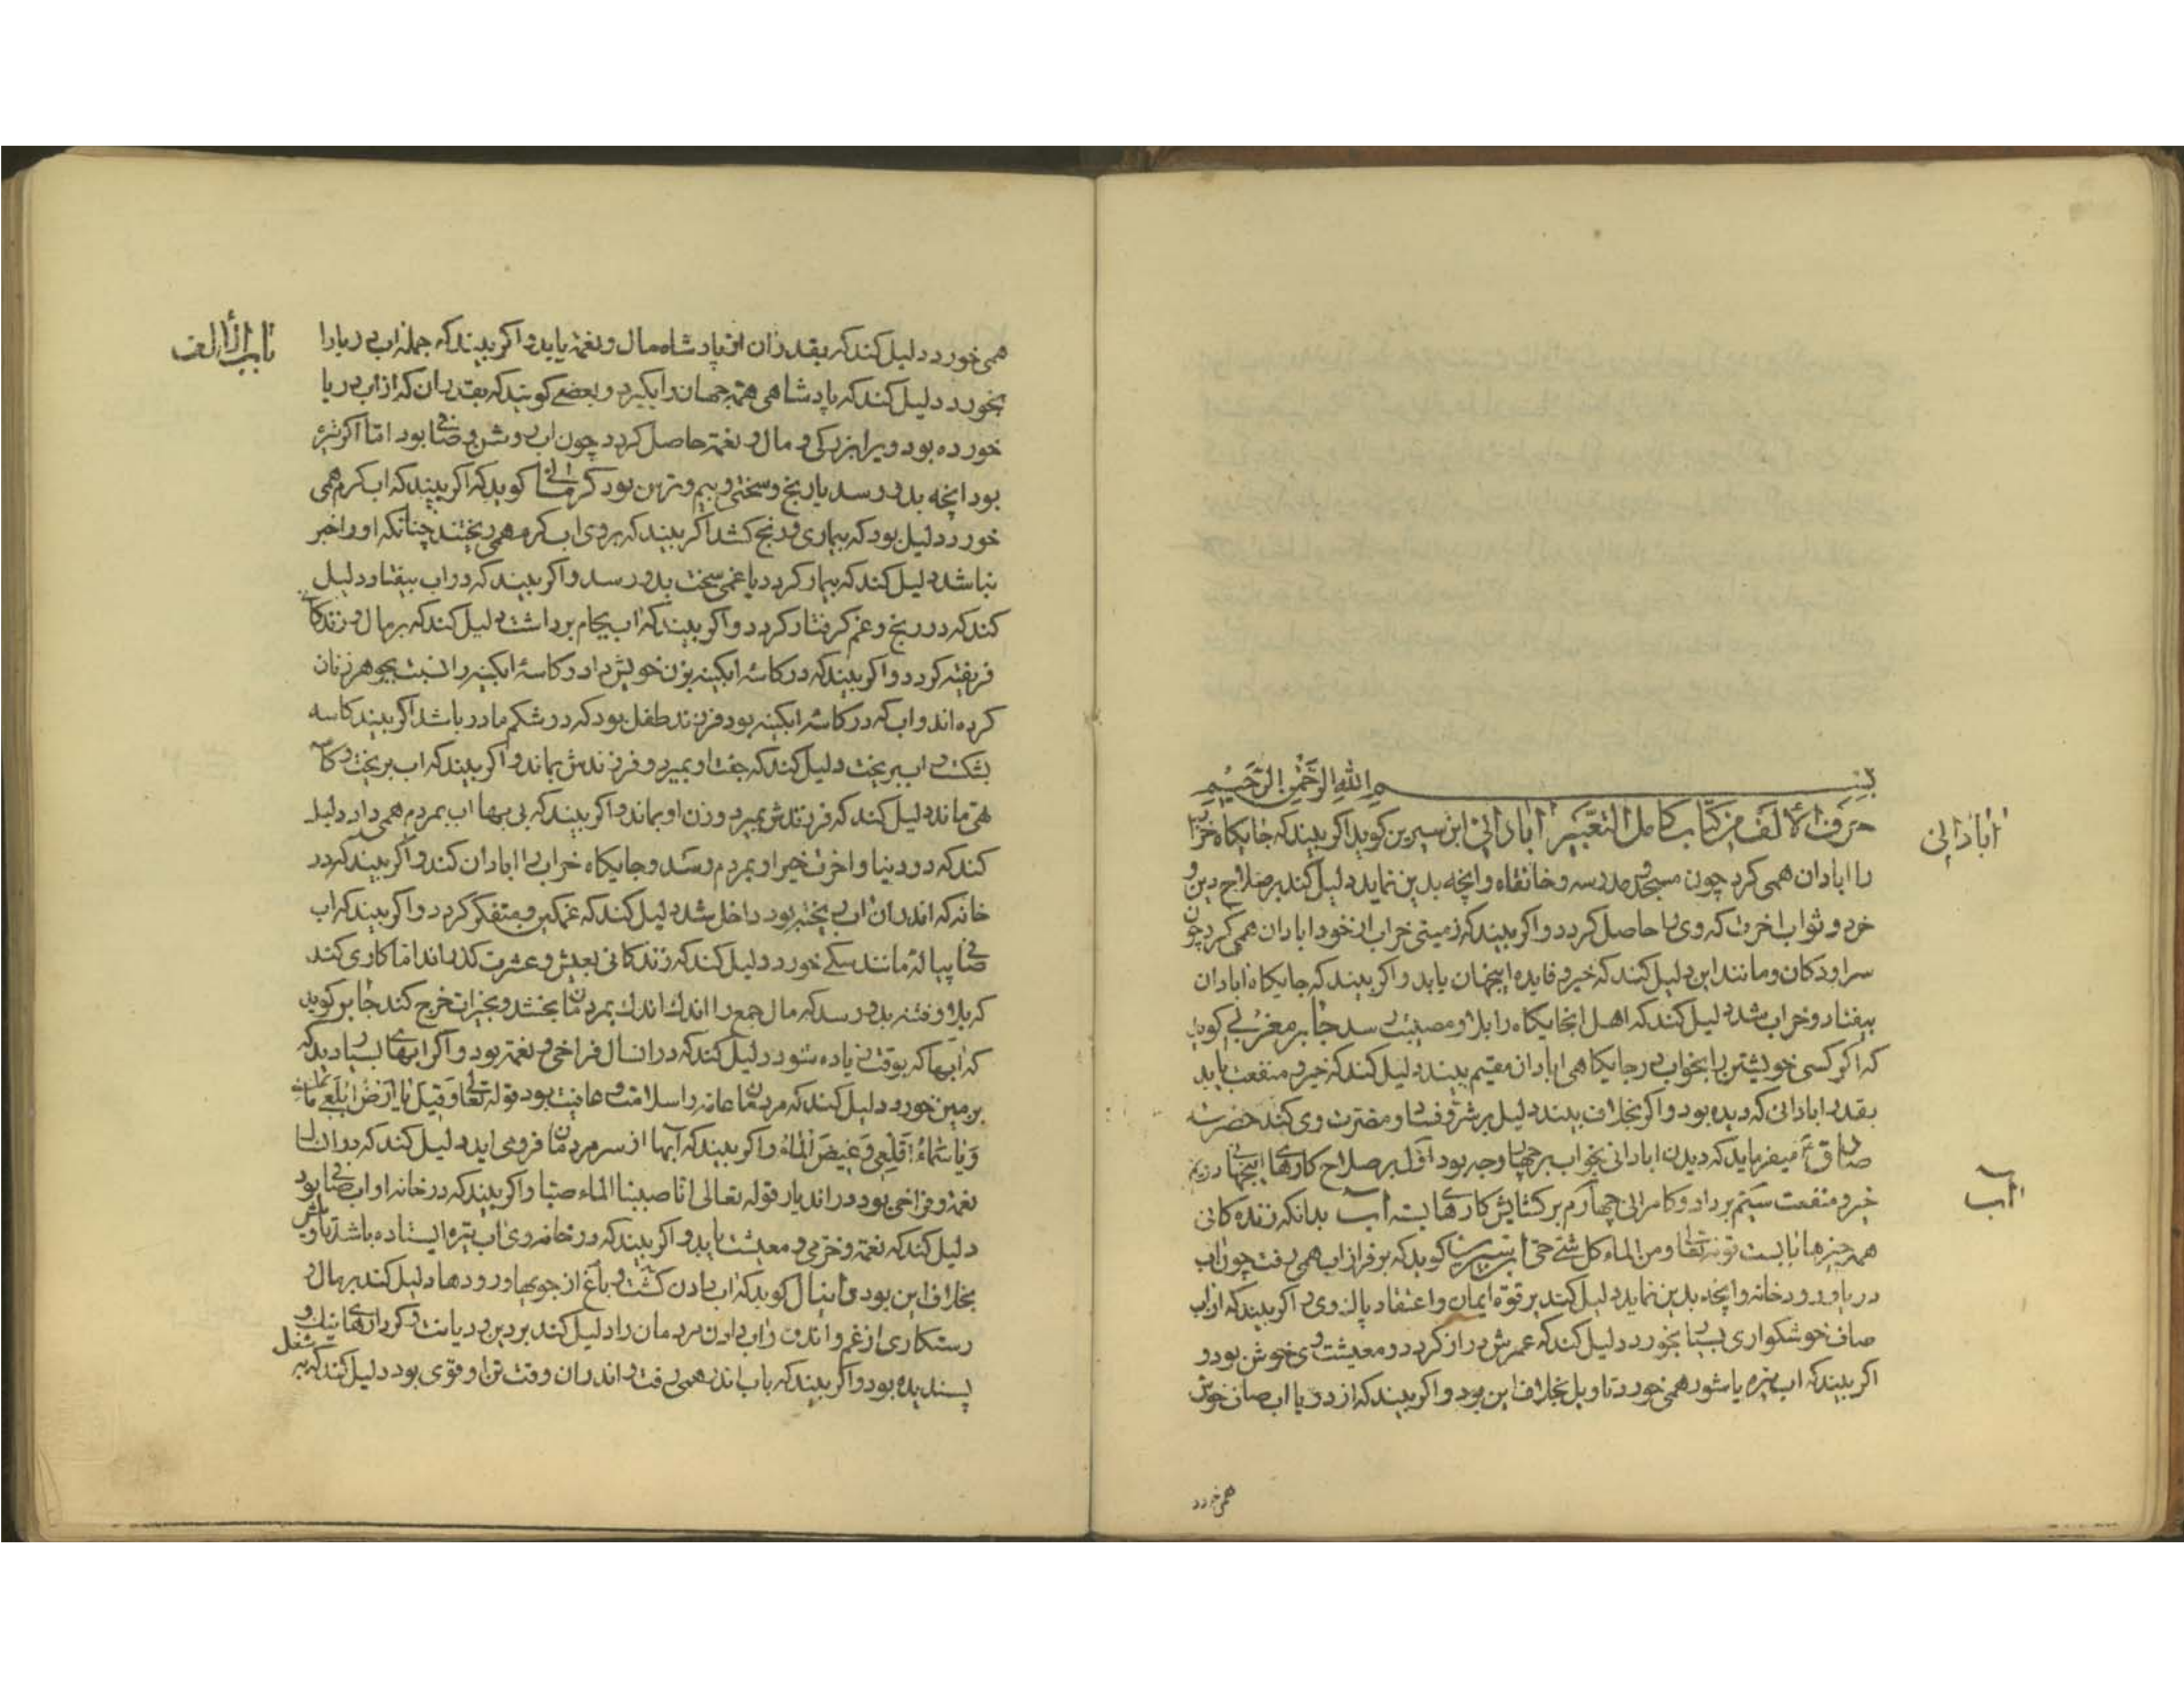 بسم الله الرَّحْمٰنِ الرَّحِيْمِ
ابادانی
حرف الالف من کتاب کامل التعبیر ابادانی ابن سیرین کوید اکر بیند که جایکاه خراب
را ابادان همی کرد چون مسجد و مدرسه و خانقاه و انچه بدین نماید دلیل کند بر صلاح دین و
خرد و ثواب اخرت که وی را حاصل کردد و اکر بیند که زمینی خراب از خود ابادان همی کرد چون
سرا و دکان و مانند این دلیل کند که خیر و فایده اینجهان یابد و اکر بیند که جایکاه ابادان
بیفتاد و خراب شد دلیل کند که اهل انجایکاه را بلا و مصیبت رسد جابر مغربی کوید
که اکر کسی خویشتن را بخواب در جایکاهی ابادان مقیم بیند دلیل کند که خیر و منفعت یابد
بقدر ابادانی که دیده بود و اکر بخلاف بیند دلیل بر شر و فساد و مضرت وی کند حضرت
صادق ع میفرماید که دیدن ابادانی بخواب بر چهار وجه بود اول بر صلاح کارهای اینجهانی دویم
آب
خیر و منفعت سیم بر داد و کامرانی چهارم بر کشایش کارهای بسته آب بدانکه زنده کانی
همه چیزها بابست قوله تعالی و من الماء کل شئ حی ابن سیرین کوید که بر فراز اب همی رفت چون اب
دریا و رودخانه و انچه بدین نماید دلیل کند بر قوة ایمان و اعتقاد پاک وی و اکر بیند که از اب
صاف خوشکواری بسیار بخورد دلیل کند که عمرش دراز کردد و معیشت وی خوش بود و
اکر بیند که اب تیره یا شور همی خورد تاویل بخلاف این بود و اکر بیند که از دریا اب صاف خوش
همی خورد
باب الألف
همی خورد دلیل کند که بقدر ان از پادشاه مال و نعمة یابد و اکر بیند که جمله اب دریا را
بخورد دلیل کند که پادشاهی همه جهان را بگیرد و بعضے کویند که بقدر ان که از اب دریا
خورده بود ویرا بزرکی و مال و نعمة حاصل کردد چون اب روشن و صافی بود اما اکر تیره
بود انچه بدو رسد با رنج و سختی و بیم و ترس بود کرمانی کوید که اکر بیند که اب کرم همی
خورد دلیل بود که بیماری و رنج کشد اکر بیند که بر وی اب کرم همی ریختند چنانکه او را خبر
نباشد دلیل کند که بیمار کردد یا غمی سخت بدو رسد و اکر بیند که در اب بیفتاد دلیل
کند که در رنج و غم کرفتار کردد و اکر بیند که اب بجام برداشت دلیل کند که بر مال و زندکانی
فریفته کردد و اکر بیند که در کاسهٔ ابکینه بزن خویش داد و کاسهٔ ابکینه را نسبت بجوهر زنان
کرده اند و اب که در کاسهٔ ابکینه بود فرزند طفل بود که در شکم مادر باشد اکر بیند کاسه
بشکست و اب بریخت دلیل کند که جفت او بمیرد و فرزندش بماند و اکر بیند که اب بریخت و کاسه
تهی ماند دلیل کند که فرزندش بمیرد و زن او بماند و اکر بیند که بی بها اب بمردم همی داد دلیل
کند که در دنیا و اخرت خیر او بمردم رسد و جایکاه خراب را ابادان کند و اکر بیند که در
خانه که اندران اب ریخته بود داخل شد دلیل کند که غمکین و متفکر کردد و اکر بیند که اب
صافی پیاله مانند سکے خورد دلیل کند که زندکانی بعیش و عشرت کذراند اما کاری کند
که بلا و فتنه بدو رسد که مال جمع را اندك اندك بمردمان بخشد و بخیرات خرج کند جابر کوید
که ابها که بوقت زیاده شود دلیل کند که در ان سال فراخی و نعمة بود و اکر ابهای بسیار دید که
بر زمین خورد دلیل کند که مردمان عامه را سلامت و عافیت بود قوله تعالی و قیل یا ارض ابلعے مائك
و یا سماء اقلعی و غیض الماء و اکر بیند که آبها از سر مردمان فرو می اید دلیل کند که در ان سال
نعمة و فراخی بود در اندیار قوله تعالی انا صببنا الماء صبا و اکر بیند که در خانه او اب صافی بود
دلیل کند که نعمة و خرمی و معیشت یابد و اکر بیند که در خانه وی اب تیره ایستاده باشد تاویلش
بخلاف این بود دانیال کوید که اب دادن کشت و باغ از جویها و رودها دلیل کند بر مال و
رستکاری از غم و اندوه و اب دادن مردمان را دلیل کند بر دین و دیانت و کردارهای نیك و
پسندیده بود و اکر بیند که باب اندر همی رفت و اندران وقت تن او قوی بود دلیل کند که به شغل